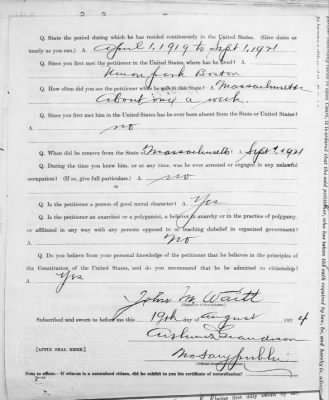 Q. State the period during which he has resided continuously in the United States. (Give dates as
nearly as you can.) A. April 1, 1919 to Sept 1, 1921
Q. Since you first met the petitioner in the United States, where has he lived? A.
Union Park Boston
Q. How often did you see the petitioner while in this State? A. Massachusetts
About once a week.
Q. Since you first met him in the United States has he ever been absent from the State or United States?
A. no
Q. When did he remove from the State of Massachusetts: Sept 1, 1921
Q. During the time you knew him, or at any time, was he ever arrested or engaged in any unlawful
occupation? (If so, give full particulars.) A. no
Q. Is the petitioner a person of good moral character? A. Yes
Q. Is the petitioner an anarchist or a polygamist, a believer in anarchy or in the practice of polygamy
or affiliated in any way with any persons opposed to or teaching disbelief in organized government?
A. No
Q. Do you believe from your personal knowledge of the petitioner that he believes in the principles of
the Constitution of the United States, and do you recommend that he be admitted to citizenship?
A. Yes
John M. Waitt
Subscribed and sworn to before me this 19th day of August 1924
Notary public
[APPLY SEAL HERE.]
Note to officer.—If witness is a naturalized citizen, did he exhibit to you his certificate of naturalization?